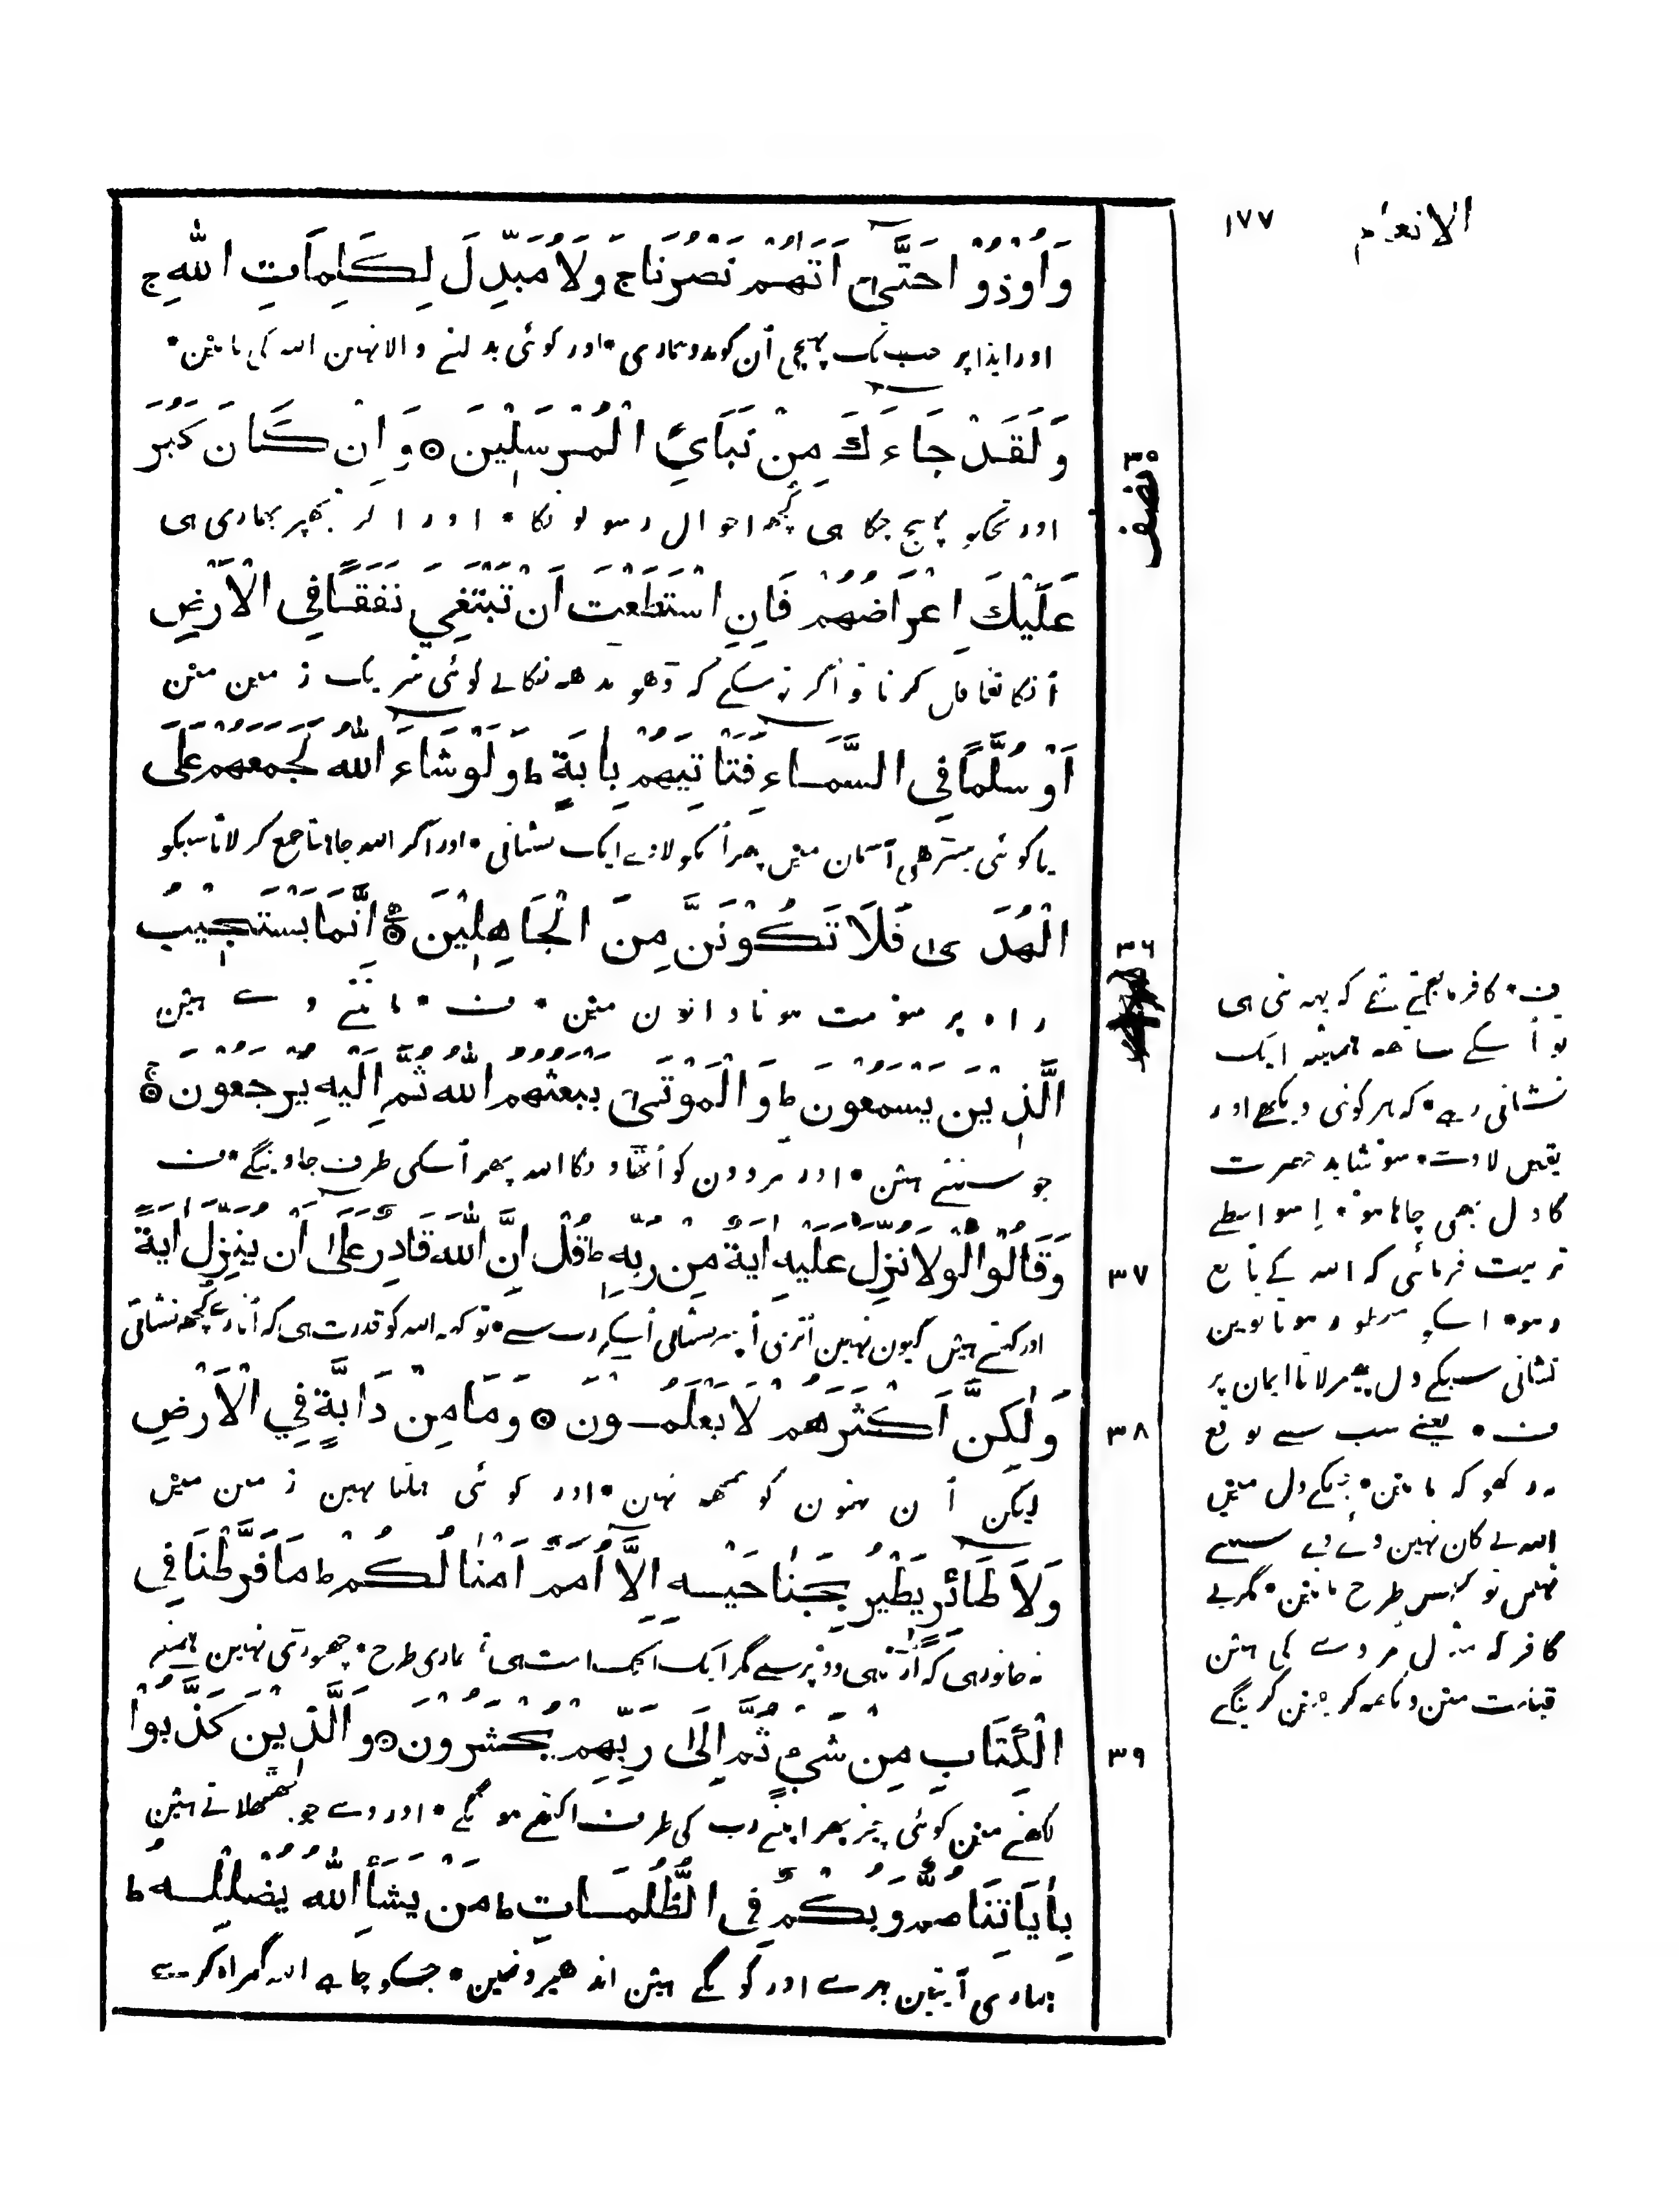 الانعام ١٧٧
وَاُوْذُوْا حَتّٰى اَتٰهُمْ نَصْرُنَا ج وَلَا مُبَدِّلَ لِكَلِمَاتِ اللّٰهِ ج
اور ایذا پر جب تک پہنچی اُن کو مدد ہماری • اور کوئی بدلنے والا نہین اللہ کی باتین •
وَلَقَدْ جَاءَكَ مِنْ نَبَائِ الْمُرْسَلِيْنَ ۝ وَاِنْ كَانَ كَبُرَ
٣٥
نصف
اور تجکو پہنچ چکا ہی کچھ احوال رسولونکا • اور اگر تجھپر بھاری ہی
عَلَيْكَ اِعْرَاضُهُمْ فَاِنِ اسْتَطَعْتَ اَنْ تَبْتَغِيَ نَفَقًا فِي الْاَرْضِ
اُنکا تغافل کرنا تو اگر تو سکے کہ ڈھونڈھ نکالے کوئی سرنگ زمین مین
اَوْ سُلَّمًا فِي السَّمَاءِ فَتَاْتِيَهُمْ بِاٰيَةٍ ط وَلَوْ شَاءَ اللّٰهُ لَجَمَعَهُمْ عَلَى
یا کوئی سیڑھی آسمان مین پھر اُنکو لاوے ایک نشانی • اور اگر اللہ چاہتا جمع کر لاتا سبکو
الْهُدٰى فَلَا تَكُوْنَنَّ مِنَ الْجَاهِلِيْنَ ۝ اِنَّمَا يَسْتَجِيْبُ
٣٦
راہ پر سو مت ہو نادانون مین • ف • مانتے وے ہین
الَّذِيْنَ يَسْمَعُوْنَ ط وَالْمَوْتٰى يَبْعَثُهُمُ اللّٰهُ ثُمَّ اِلَيْهِ يُرْجَعُوْنَ ۝
جو سنتے ہین • اور مردون کو اُٹھاویگا اللہ پھر اُسکی طرف جاوینگے • ف
وَقَالُوْا لَوْلَا نُزِّلَ عَلَيْهِ اٰيَةٌ مِنْ رَبِّهِ ط قُلْ اِنَّ اللّٰهَ قَادِرٌ عَلٰى اَنْ يُنَزِّلَ اٰيَةً
٣٧
اور کہتے ہین کیون نہین اُتری اُسپر نشانی اُسکے رب سے • تو کہہ اللہ کو قدرت ہی کہ اُتارے کچھ نشانی
وَلٰكِنَّ اَكْثَرَهُمْ لَا يَعْلَمُوْنَ ۝ وَمَا مِنْ دَابَّةٍ فِي الْاَرْضِ
٣٨
لیکن اُن بہتون کو سمجھ نہین • اور کوئی چلتا نہین زمین مین
وَلَا طَائِرٍ يَطِيْرُ بِجَنَاحَيْهِ اِلَّا اُمَمٌ اَمْثَالُكُمْ ط مَا فَرَّطْنَا فِي
نہ جانور ہی کہ اُڑتا ہی دو پر سے مگر ایک ایک امت ہی تمہاری طرح • چھوڑی نہین ہمنے
الْكِتَابِ مِنْ شَيْءٍ ثُمَّ اِلٰى رَبِّهِمْ يُحْشَرُوْنَ ۝ وَالَّذِيْنَ كَذَّبُوْا
٣٩
لکھنے مین کوئی چیز پھر اپنے رب کی طرف اکٹھے ہونگے • اور وے جو جھٹھلاتے ہین
بِاٰيَاتِنَا صُمٌّ وَبُكْمٌ فِي الظُّلُمَاتِ ط مَنْ يَشَاِ اللّٰهُ يُضْلِلْهُ ط
ہماری آیتین بہرے اور گونگے ہین اندھیرونمین • جسکو چاہے اللہ گمراہ کرے
ف • کافر مانگتے تھے کہ یہہ نبی ہی
تو اُسکے ساتھ ہمیشہ ایک
نشانی رہے • کہ ہر کوئی دیکھے اور
یقین لاوے • سو شاید حضرت
کا دل بھی چاہا ہو • اِسواسطے
تربیت فرمائی کہ اللہ کے تابع
رہو • اسکو منظور ہوتا تو بن
نشانی سبکے دل پھیر لاتا ایمان پر
ف • یعنے سب سے توقع
نہ رکھو کہ مانین • جنکے دل مین
اللہ نے کان نہین دئے وے سنتے
نہین تو کس طرح مانین • مگر یے
کافر کہ مثل مردے کی ہین
قیامت مین دیکھ کر یقین کرینگے